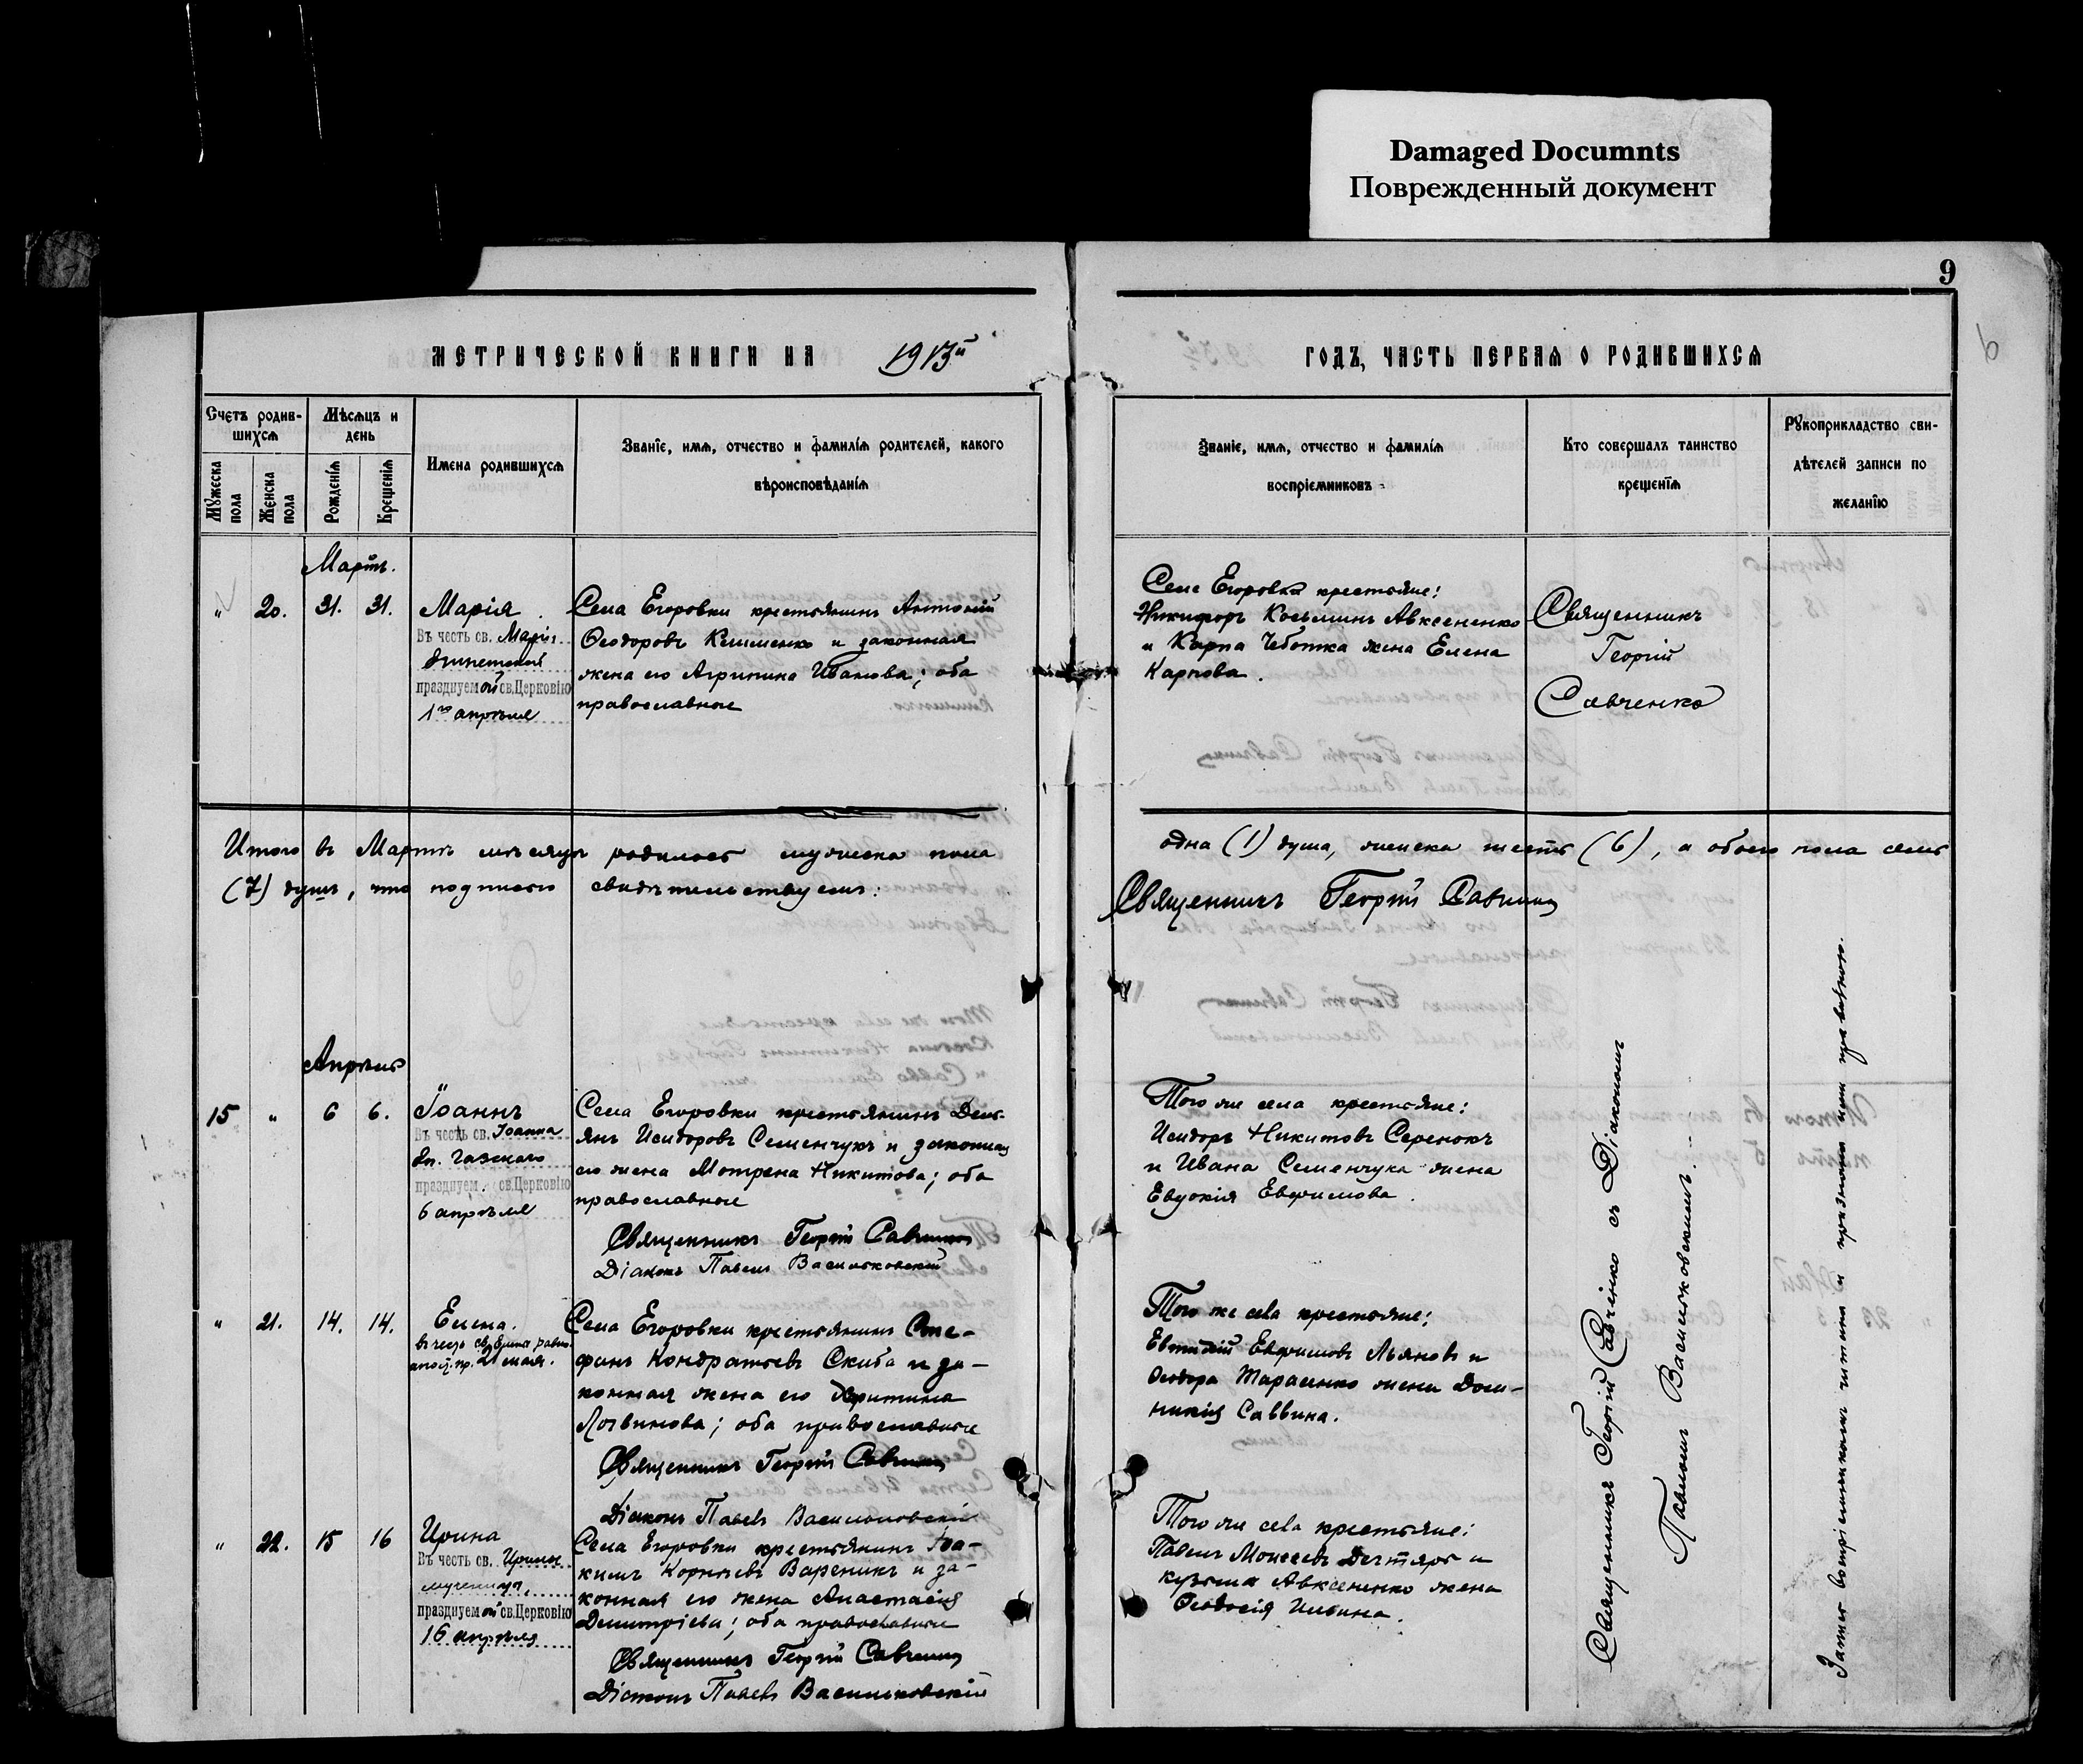 Damaged Documnts
Поврежденный документ
9
6
МЕТРИЧЕСКОЙ КНИГИ НА 1913й
ГОДЪ, ЧАСТЬ ПЕРВАЯ О РОДИВШИХСЯ
Счетъ родив-
шихся
Мужеска пола
Женска пола
Мѣсяцъ и
день
Рожденія
Крещенія
Имена родившихся
Званіе, имя, отчество и фамилія родителей, какого
вѣроисповѣданія
Званіе, имя, отчество и фамилія
воспріемниковъ
Кто совершалъ таинство
крещенія
Рукоприкладство сви-
дѣтелей записи по
желанію
Мартъ.
" 20. 31. 31.
Марія.
Въ честь св. Маріи
Египетской
празднуемой св. Церковію
1го апрѣля
Села Егоровки крестьянинъ Антоній
Ѳеодоровъ Клименко и законная
жена его Агрипина Иванова; оба
православные
Села Егоровки крестьяне:
Никифоръ Косьминъ Авксененко
и Карпа Чеботка жена Елена
Карпова.
Священникъ
Георгій
Савченко
Итого въ Мартѣ мѣсяцѣ родилось мужеска пола одна (1) душа, женска шесть (6), а обоего пола семь
(7) душъ, что подписью свидѣтельствуемъ: Священникъ Георгій Савченко
Апрѣль
15 " 6 6.
Іоаннъ
Въ честь св. Іоанна
празднуем. св. Церковію
6 апрѣля
Села Егоровки крестьянинъ Демь-
янъ Исидоровъ Семенчукъ и законная
его жена Мотрена Никитова; оба
православные
Священникъ Георгій Савченко
Діаконъ Павелъ Васильковскій
Того же села крестьяне:
Исидоръ Никитовъ Серенокъ
и Ивана Семенчука жена
Евдокія Евфимова.
" 21. 14. 14.
Елена.
въ честь св. Елены равно-
апост. пр. 21 мая.
Села Егоровки крестьянинъ Сте-
фанъ Кондратьевъ Скиба и за-
конная жена его Христина
Логвинова; оба православные
Священникъ Георгій Савченко
Діаконъ Павелъ Васильковскій
Того же села крестьяне:
Евтихій Евфимовъ Льяновъ и
Ѳеодора Тарасенко жена Дом-
никія Саввина.
" 22. 15 16
Ирина
Въ честь св. Ирины
мученицы,
празднуемой св. Церковію
16 апрѣля
Села Егоровки крестьянинъ Іоа-
кимъ Корніевъ Вареникъ и за-
конная его жена Анастасія
Димитріева; оба православные
Священникъ Георгій Савченко
Діаконъ Павелъ Васильковскій
Того же села крестьяне:
Павелъ Моисеевъ Дехтярь и
Кузьма Авксененко жена
Ѳеодосія Ильина.
Священникъ Георгій Савченко съ Діакономъ
Павломъ Васильковскимъ.